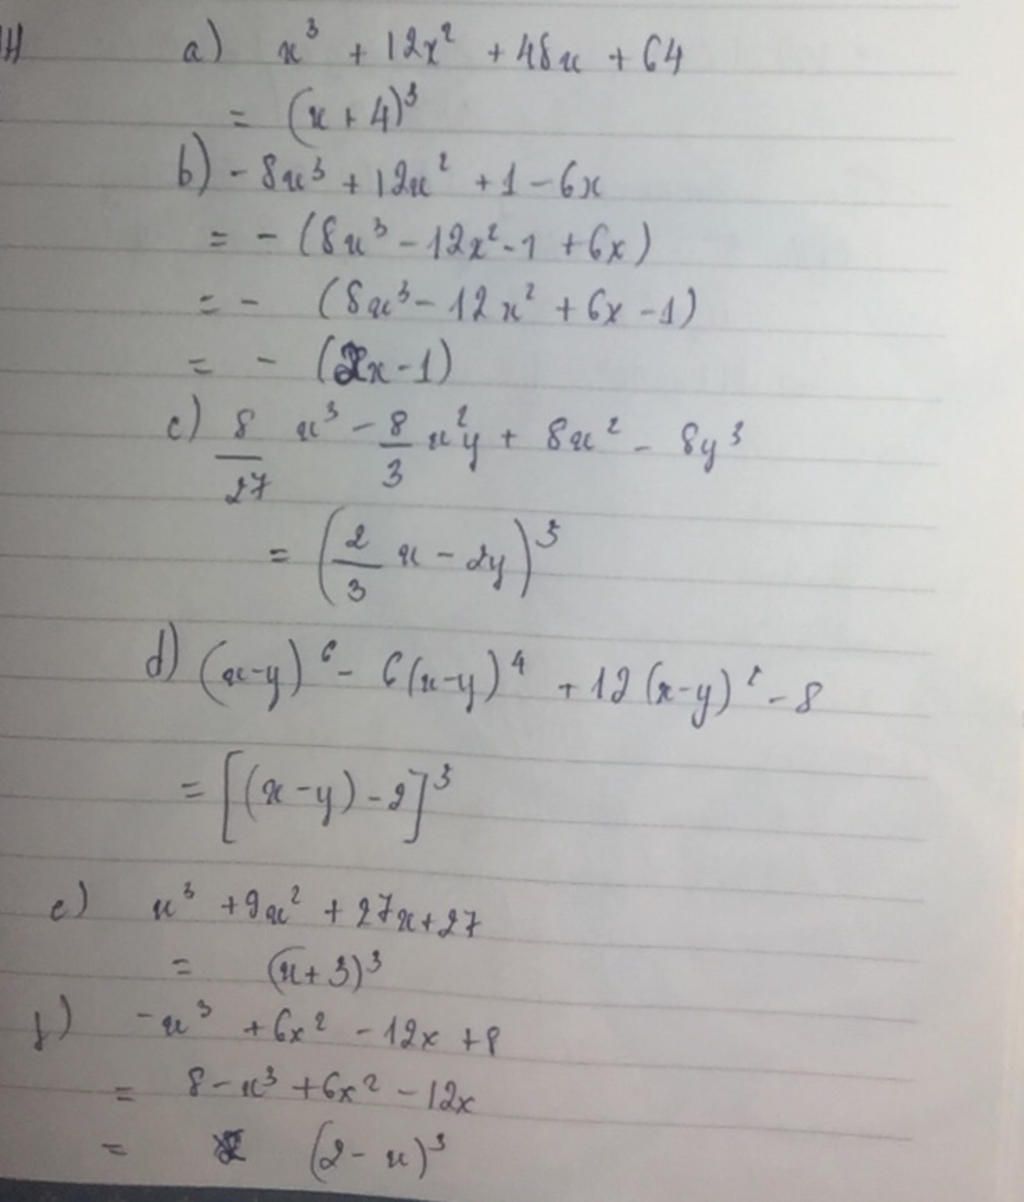 a) x³ + 12x² + 48x + 64
= (x + 4)³
b) - 8x³ + 12x² + 1 - 6x
= - (8x³ - 12x² - 1 + 6x)
= - (8x³ - 12x² + 6x - 1)
= - (2x - 1)
c) 8/27 x³ - 8/3 x²y + 8x² - 8y³
= (2/3 x - 2y)³
d) (x-y)⁶ - 6(x-y)⁴ + 12(x-y)² - 8
= [(x-y) - 2]³
e) x³ + 9x² + 27x + 27
= (x+3)³
f) -x³ + 6x² - 12x + 8
= 8 - x³ + 6x² - 12x
= (2 - x)³